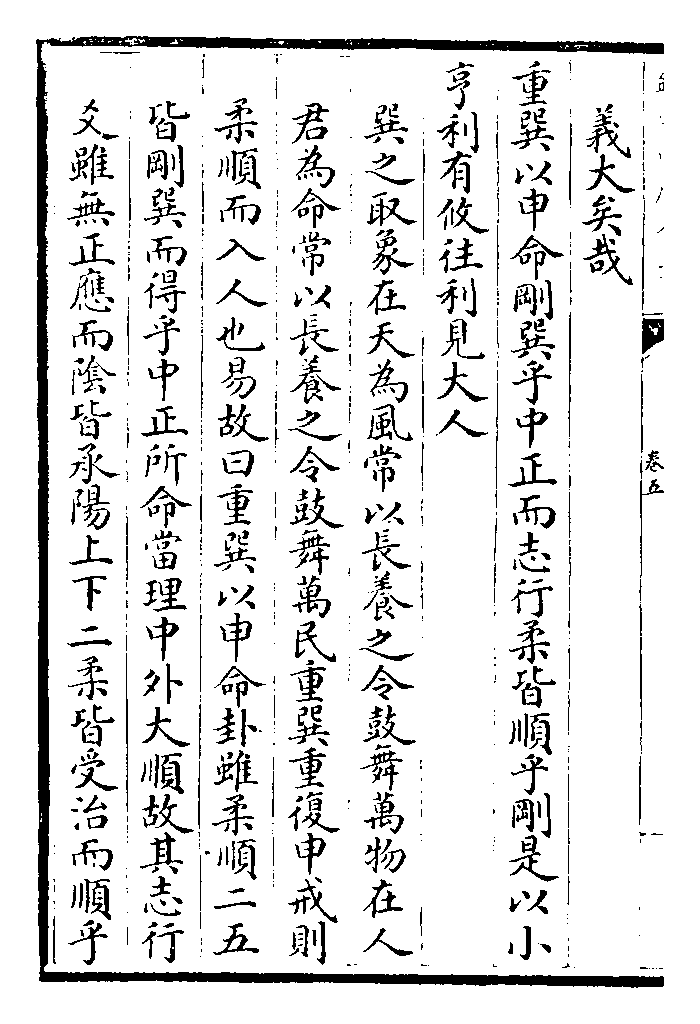 義大矣哉
重巽以申命剛巽乎中正而志行柔皆順乎剛是以小
亨利有攸往利見大人
巽之取象在天為風常以長養之令鼓舞萬物在人
君為命常以長養之令鼓舞萬民重巽重復申戒則
柔順而入人也易故曰重巽以申命卦雖柔順二五
皆剛巽而得乎中正所命當理中外大順故其志行
爻雖無正應而陰皆承陽上下二柔皆受治而順乎
卷五